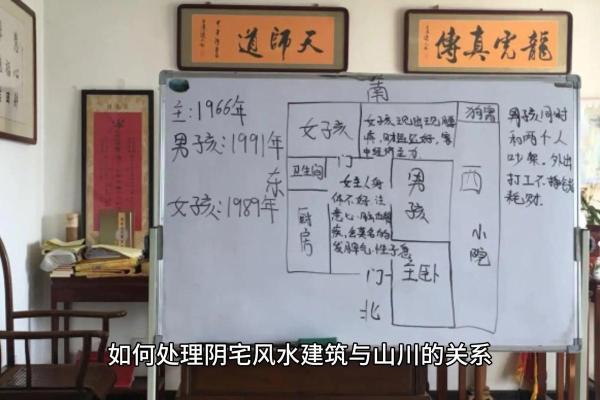 天師道
龍虎真傳
南
主:1966年
男孩:1991年
女孩:1989年
东
女孩
女孩现出现腰
疼,财运还好,家
中经济主力
狗窝
卫生间
门
女主人身
体不好注
意心脑血管
疾,会莫名的
发脾气,性子急
厨房
男孩
主卧
西
小院
门
北
男孩同时
和两个人
吵架,外出
打工不挣钱
耗财.
如何处理阴宅风水建筑与山川的关系